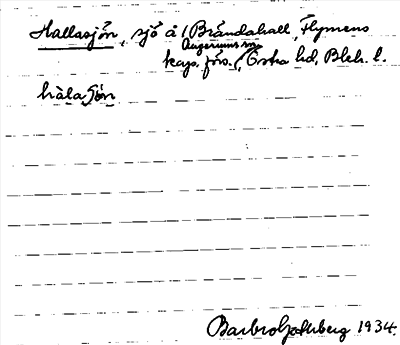 Hallasjön, sjö å 1 Brändahall, Flymens
Augerums sn
kaps. förs., Östra hd, Blek. l.
hàlasjön
Barbro 1934.